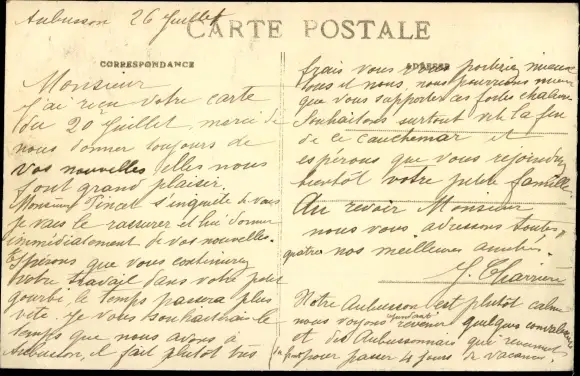 Aubusson 26 Juillet
CARTE POSTALE
CORRESPONDANCE
Monsieur
J'ai reçu votre carte
du 20 Juillet, merci de
nous donner toujours de
vos nouvelles elles nous
font grand plaisir.
Monsieur s'inquiète de vous
je vais le rassurer et lui donner
immédiatement de vos nouvelles.
Espérons que vous continuerez
votre travail dans votre petit
gourbi, le temps passera plus
vite. Je vous souhaiterais le
temps que nous avons à
Aubusson, il fait plutôt très
ADRESSE
frais vous vous porteriez mieux
tous et nous, nous pourrions
que vous supportez ces fortes chaleurs.
Souhaitons surtout vite la fin
de ce cauchemar et
espérons que vous rejoindrez
bientôt votre petite famille.
Au revoir Monsieur
nous vous adressons toutes
quatre nos meilleures amitiés.
J. Charrière
Notre Aubusson est plutôt calme
nous voyons cependant revenir quelques convalescents
et des Aubussonnais qui reviennent
pour passer 4 jours de vacances.